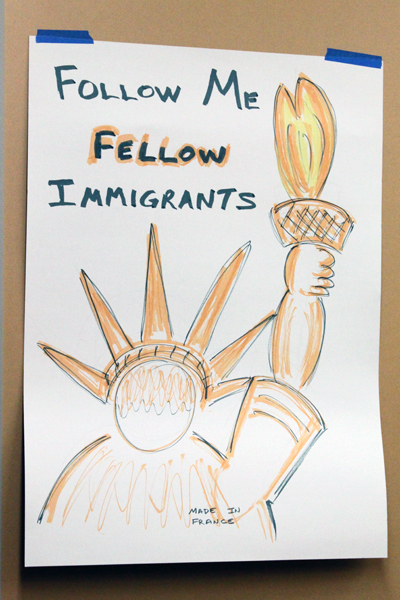 FOLLOW ME
FELLOW
IMMIGRANTS
MADE IN
FRANCE